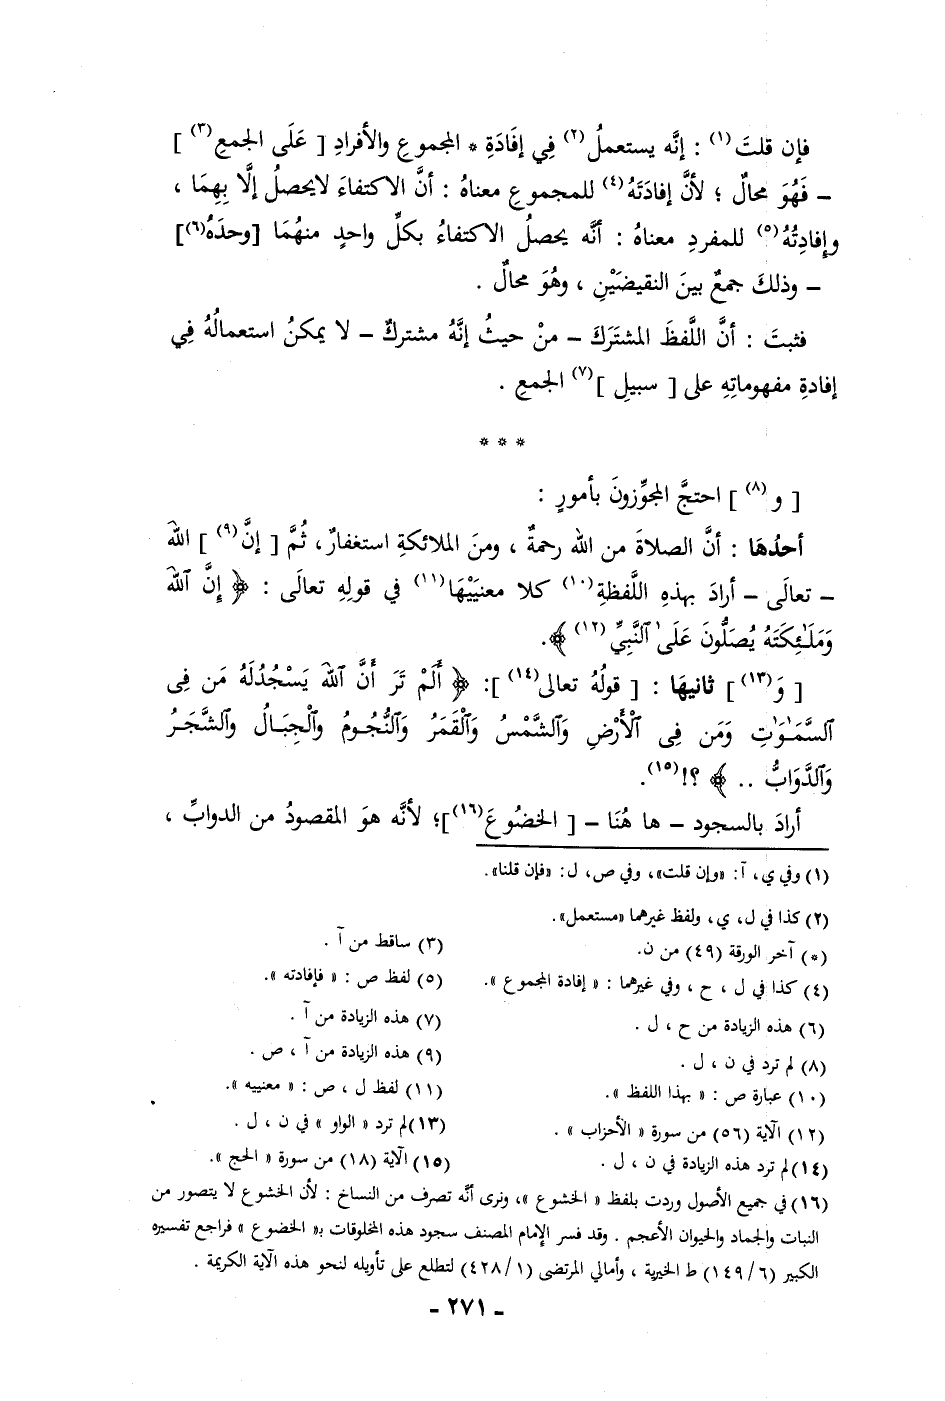 فإن قلتَ (١) : إنَّه يستعملُ (٢) فِي إفَادَةِ * المجموعِ والأفرادِ [ عَلَى الجمعِ (٣) ]
– فَهُوَ محالٌ ؛ لأنَّ إفادَتَهُ (٤) للمجموعِ معناهُ : أنَّ الاكتفاءَ لايحصلُ إلَّا بِهِمَا ،
وإفادتُهُ (٥) للمفردِ معناهُ : أنَّه يحصلُ الاكتفاءُ بكلِّ واحدٍ منهُمَا [وحدَهُ (٦)]
– وذلكَ جمعٌ بينَ النقيضَيْنِ ، وهُوَ محالٌ .
فثبتَ : أنَّ اللَّفظَ المشتَرَكَ – منْ حيثُ إنَّهُ مشتركٌ – لا يمكنُ استعمالُهُ فِي
إفادةِ مفهوماتِهِ على [ سبيلِ ] (٧) الجمعِ .
* * *
[ و (٨) ] احتجَّ المجوِّزونَ بأمورٍ :
أحدُهَا : أنَّ الصلاةَ من اللَّه رحمةٌ ، ومنَ الملائكةِ استغفارٌ ، ثُمَّ [ إنَّ (٩) ] اللَّهَ
– تعالَى – أرادَ بهذهِ اللَّفظةِ (١٠) كلا معنيَيْهَا (١١) في قولِهِ تعالَى : ﴿ إِنَّ ٱللَّهَ
وَمَلَـٰٓئِكَتَهُ يُصَلُّونَ عَلَى ٱلنَّبِيِّ (١٢) ﴾.
[ وَ (١٣) ] ثانيهَا : [ قولُهُ تعالى (١٤) ]: ﴿ أَلَمْ تَرَ أَنَّ ٱللَّهَ يَسْجُدُلَهُ مَن فِى
ٱلسَّمَـٰوَٰتِ وَمَن فِى ٱلْأَرْضِ وَٱلشَّمْسُ وَٱلْقَمَرُ وَٱلنُّجُومُ وٱلْجِبَالُ وٱلشَّجَرُ
وَٱلدَّوَابُّ .. ﴾ ؟! (١٥).
أرادَ بالسجود – ها هُنَا – [ الخضُوعَ (١٦) ]؛ لأنَّه هوَ المقصودُ من الدوابِّ ،
(١) وفي ي، آ: «وإن قلت»، وفي ص، ل: «فإن قلنا».
(٢) كذا في ل، ي، ولفظ غيرهما «مستعمل».
(*) آخر الورقة (٤٩) من ن. (٣) ساقط من آ .
(٤) كذا في ل ، ح ، وفي غيرهما : « إفادة المجموع ». (٥) لفظ ص : « فإفادته ».
(٦) هذه الزيادة من ح ، ل . (٧) هذه الزيادة من آ .
(٨) لم ترد في ن ، ل . (٩) هذه الزيادة من آ ، ص .
(١٠) عبارة ص : « بهذا اللفظ ». (١١) لفظ ل ، ص : « معنييه ».
(١٢) الآية (٥٦) من سورة « الأحزاب » . (١٣)لم ترد « الواو » في ن ، ل .
(١٤)لم ترد هذه الزيادة في ن ، ل . (١٥) الآية (١٨) من سورة « الحج ».
(١٦) في جميع الأصول وردت بلفظ « الخشوع »، ونرى أنَّه تصرف من النساخ : لأن الخشوع لا يتصور من
النبات والجماد والحيوان الأعجم . وقد فسر الإمام المصنف سجود هذه المخلوقات بـ« الخضوع » فراجع تفسيره
الكبير (٦/ ١٤٩) ط الخيرية ، وأمالي المرتضى (١/ ٤٢٨) لتطلع على تأويله لنحو هذه الآية الكريمة .
ـ ٢٧١ ـ